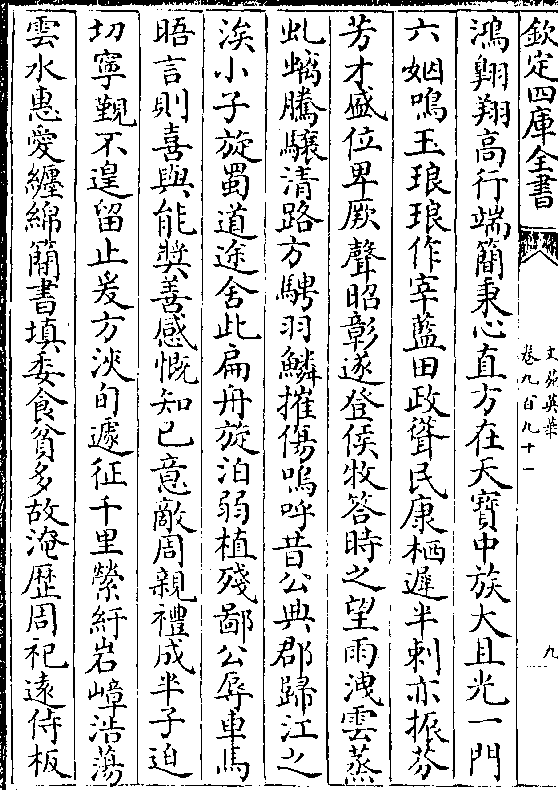 欽定四庫全書
文苑英華
卷九百九十一
九
鴻翺翔高行端簡秉心直方在天寶中族大且光一門
六姻鳴玉琅琅作宰藍田政聲民康栖遲半刺亦振芬
芳才盛位卑厥聲昭彰遂登侯牧答時之望雨洩雲蒸
虬螭騰驤清路方騁羽鱗摧傷嗚呼昔公典郡歸江之
涘小子旋蜀道途舍此扁舟旋泊弱植殘鄙公辱車馬
晤言則喜與能奬善感慨知已意敵周親禮成半子迫
切寧覲不遑留止爰方浹旬遽征千里縈紆岩嶂浩蕩
雲水惠愛纏綿簡書填委食貧多故淹歴周祀遠侍板